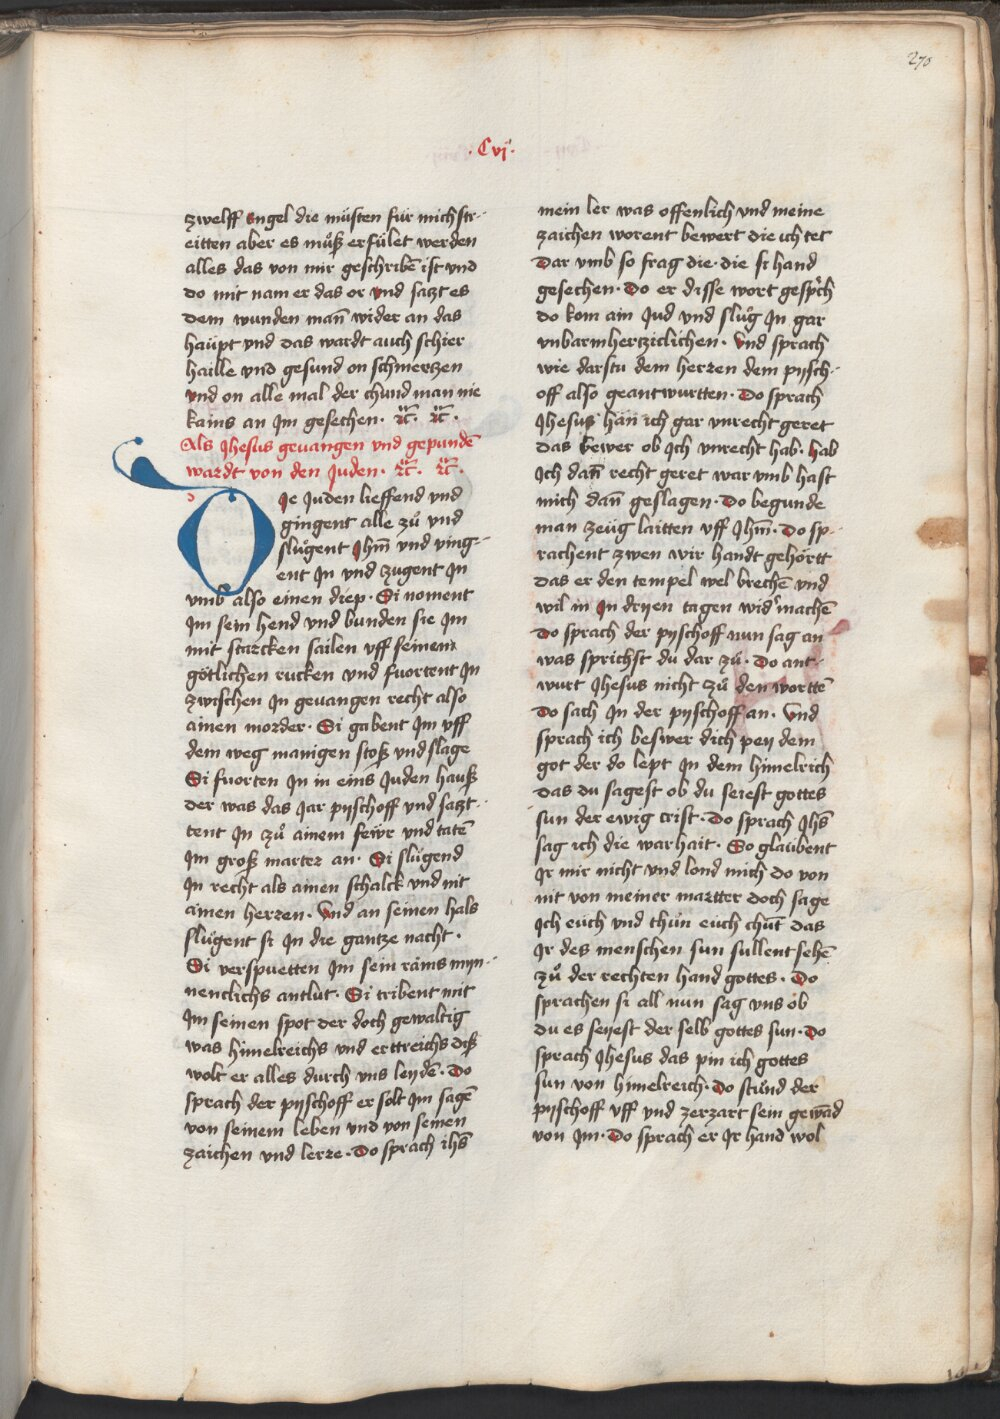 270
· Cvj ·
zwelff engel die müsten für mich str-
eitten aber es müß erfület werden
alles das von mir geschribē ist vnd
do mit nam er das or vnd satzt es
dem wunden mañ wider an das
haüpt vnd das wardt auch schier
haille vnd gesund on schmertzen
vnd on alle mal der chund man nie
kains an Im gesechen · rc̈ · rc̈ ·
Als Jhesus geuangen vnd gepundē
wardt von den Juden · rc̈ · rc̈ ·
DIe Juden lieffend vnd
gingent alle zů vnd
slůgent Jhm̄ vnd ving-
ent In vnd zugent In
vmb also einen diep · Si noment
Im sein hend vnd bunden sie Im
mit starcken sailen vff seinem
götlichen rucken vnd fuortent In
zwischen In geuangen recht also
ainen morder · Si gabent Im vff
dem weg manigen stoß vnd slage
Si fuorten In in eins Juden hauß
der was das Jar pyschoff vnd satzt-
tent In zů ainem feẅr vnd tatē
Im groß marter an · Si slůgend
In recht als ainen schalck vnd nit
ainen herren · Vnd an seinen hals
slůgent si In die gantze nacht ·
Si verspuetten Im sein rains myn-
nenclichs antlut · Si tribent mit
Im seinen spot der doch gewaltig
was himelreichs vnd erttreichs diß
wolt er alles durch vns leydē · Do
sprach der pyschoff er solt Im sagē
von seinem leben vnd von seinen
zaichen vnd lerre · Do sprach ihs̄
mein ler was offenlich vnd meine
zaichen worent bewert die ich tet
Dar vmb so frag die · die si hand
gesechen · Do er disse wort gesp̄ch
do kom ain Jud vnd slůg In gar
vnbarmhertziclichen · Vnd sprach
wie darstu dem herren dem pysch-
off also geantwurtten · Do sprach
Jhesus hän ich gar vnrecht geret
das bewer ob Ich vnrecht hab · hab
Ich dañ recht geret war vmb hast
mich dañ geslagen · Do begunde
man zeüg laitten vff Jhm̄ · Do sp-
rachent zwen wir handt gehörtt
das er den tempel wel brechē vnd
wil in In dryen tagen wid' machē
Do sprach der pyschoff nun sag an
was sprichst du dar zů · Do ant-
wurt Jhesus nicht zů den worttē
Do sach In der pyschoff an · Vnd
sprach ich beswer dich pey dem
got der do lept In dem himelrich
das du sagest ob du seiest gottes
sun der ewig crist · Do sprach Jhs̄
sag ich die warhait · So glaubent
Ir mir nicht vnd lond mich do von
nit von meiner martter doch sage
Ich euch vnd thůn euch chūt das
Ir des menschen sun sullent sehē
zů der rechten hand gottes · Do
sprachen si all nun sag vns ob
du es seyest der selb gottes sun · Do
sprach Jhesus das pin ich gottes
sun von himelreich · Do stůnd der
pyschoff vff vnd zerzart sein gewād
von Im · Do sprach er Ir hand wol